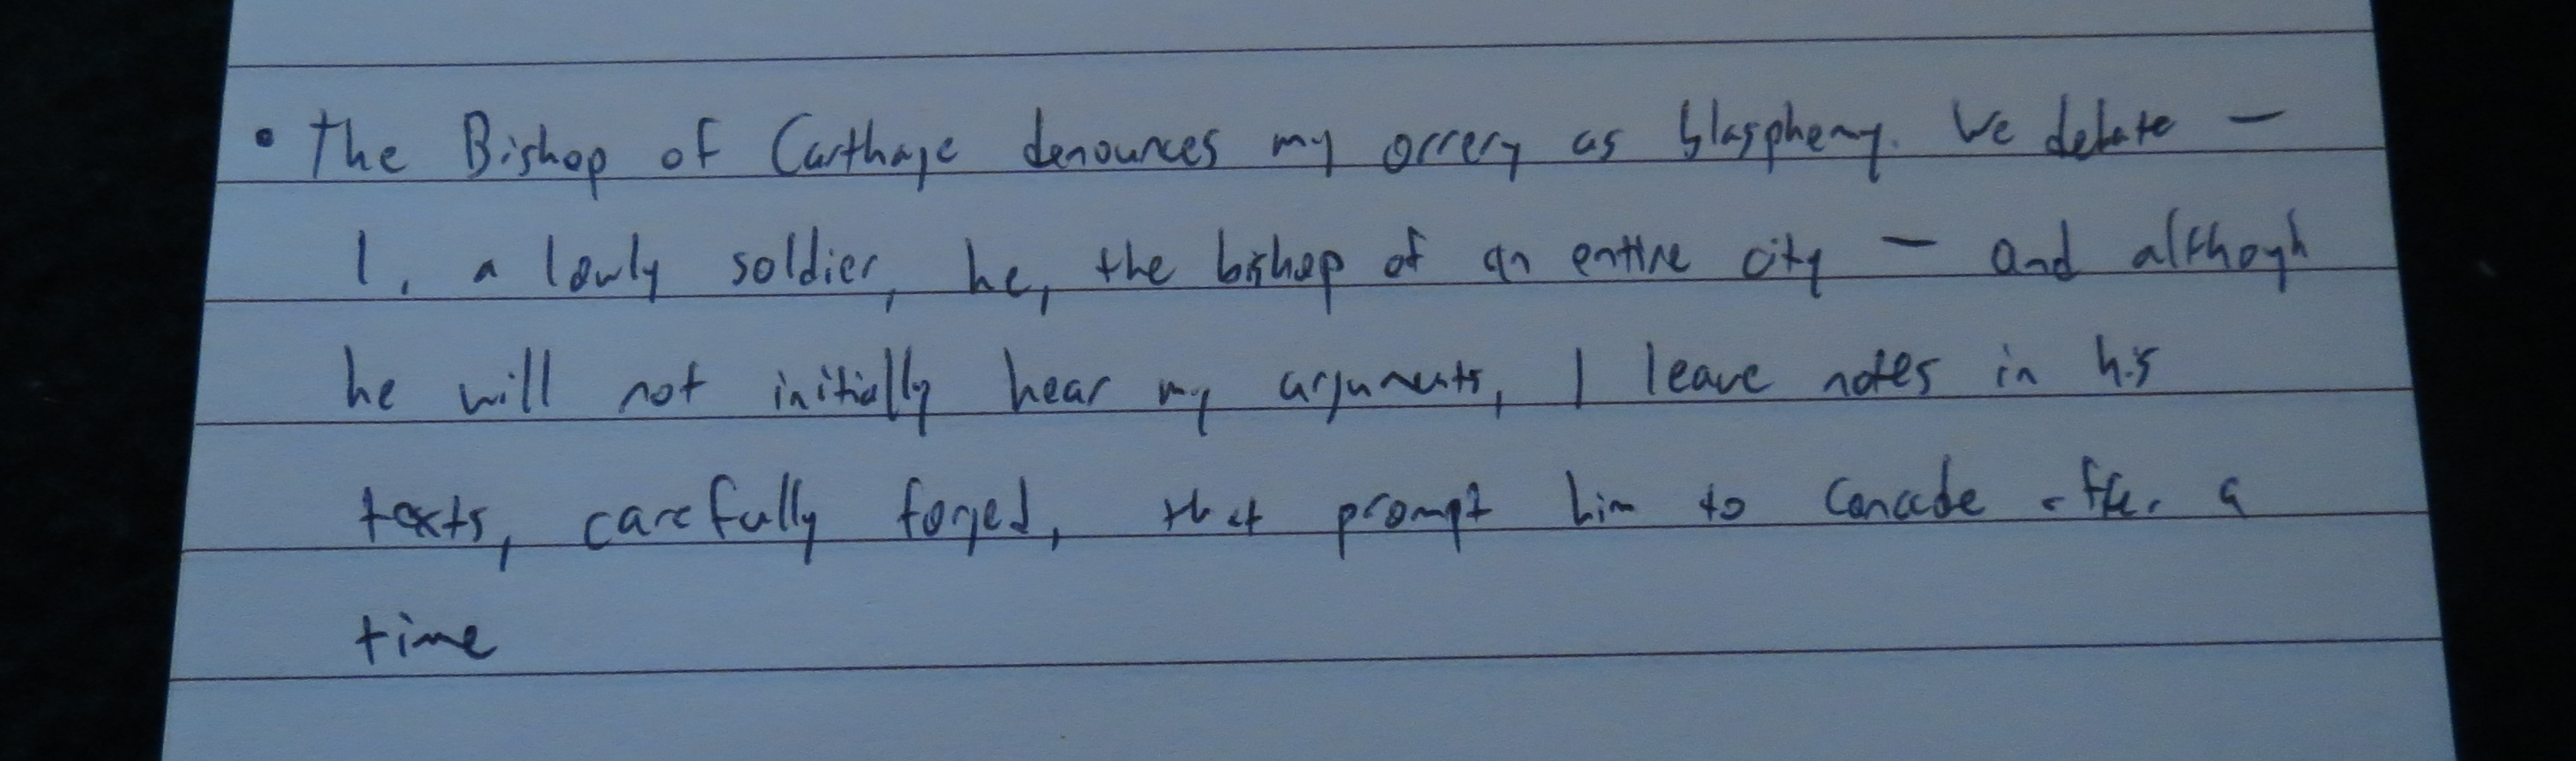 • The Bishop of Carthage denounces my orrery as blasphemy. We debate —
I, a lowly soldier, he, the bishop of an entire city — and although
he will not initially hear my arguments, I leave notes in his
texts, carefully forged, that prompt him to concede after a
time